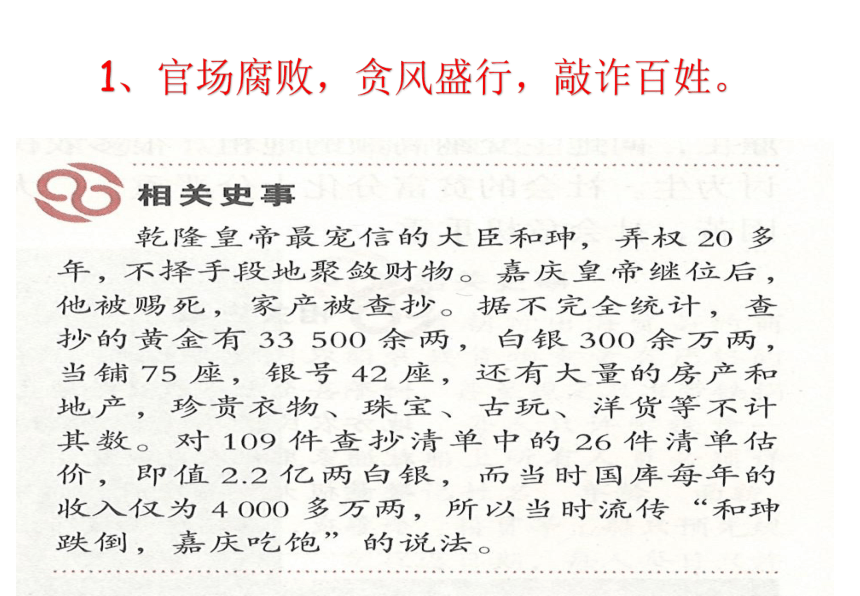 1、官场腐败，贪风盛行，敲诈百姓。
相关史事
乾隆皇帝最宠信的大臣和珅，弄权 20 多
年，不择手段地聚敛财物。嘉庆皇帝继位后，
他被赐死，家产被查抄。据不完全统计，查
抄的黄金有 33 500 余两，白银 300 余万两，
当铺 75 座，银号 42 座，还有大量的房产和
地产，珍贵衣物、珠宝、古玩、洋货等不计
其数。对 109 件查抄清单中的 26 件清单估
价，即值 2.2 亿两白银，而当时国库每年的
收入仅为 4 000 多万两，所以当时流传“和珅
跌倒，嘉庆吃饱”的说法。